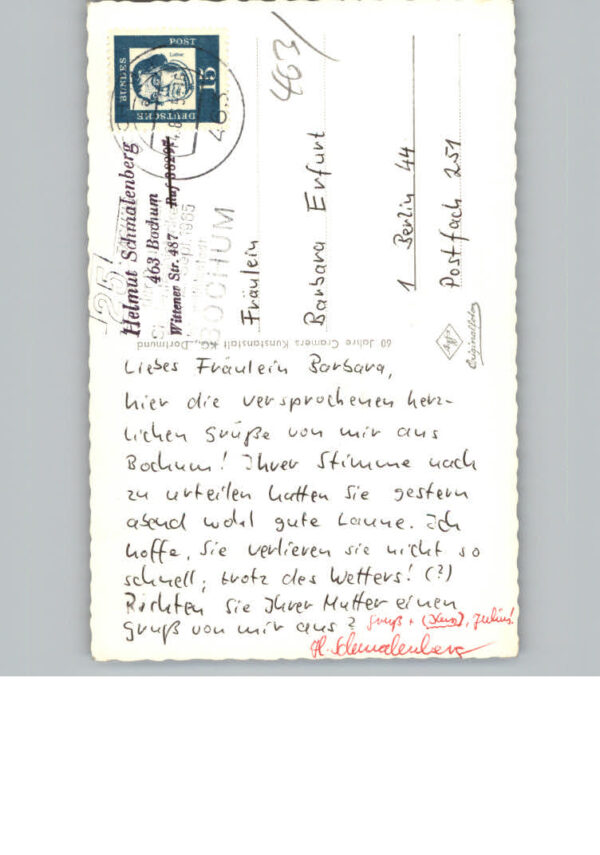 DEUTSCHE
BUNDES
POST
15
Luther
463
Helmut Schmalenberg
463 Bochum
Wittener Str. 487
BOCHUM
Fräulein
Barbara Erfurt
1 Berlin 44
Postfach 251
60 Jahre Cramers Kunstanstalt KG., Dortmund
Agfa
Originalfoto
Liebes Fräulein Barbara,
hier die versprochenen herz-
lichen Grüße von mir aus
Bochum! Ihrer Stimme nach
zu urteilen hatten Sie gestern
abend wohl gute Laune. Ich
hoffe, Sie verlieren sie nicht so
schnell; trotz des Wetters! (?)
Richten Sie Ihrer Mutter einen
Gruß von mir aus?
Gruß +
H. Schmalenberg